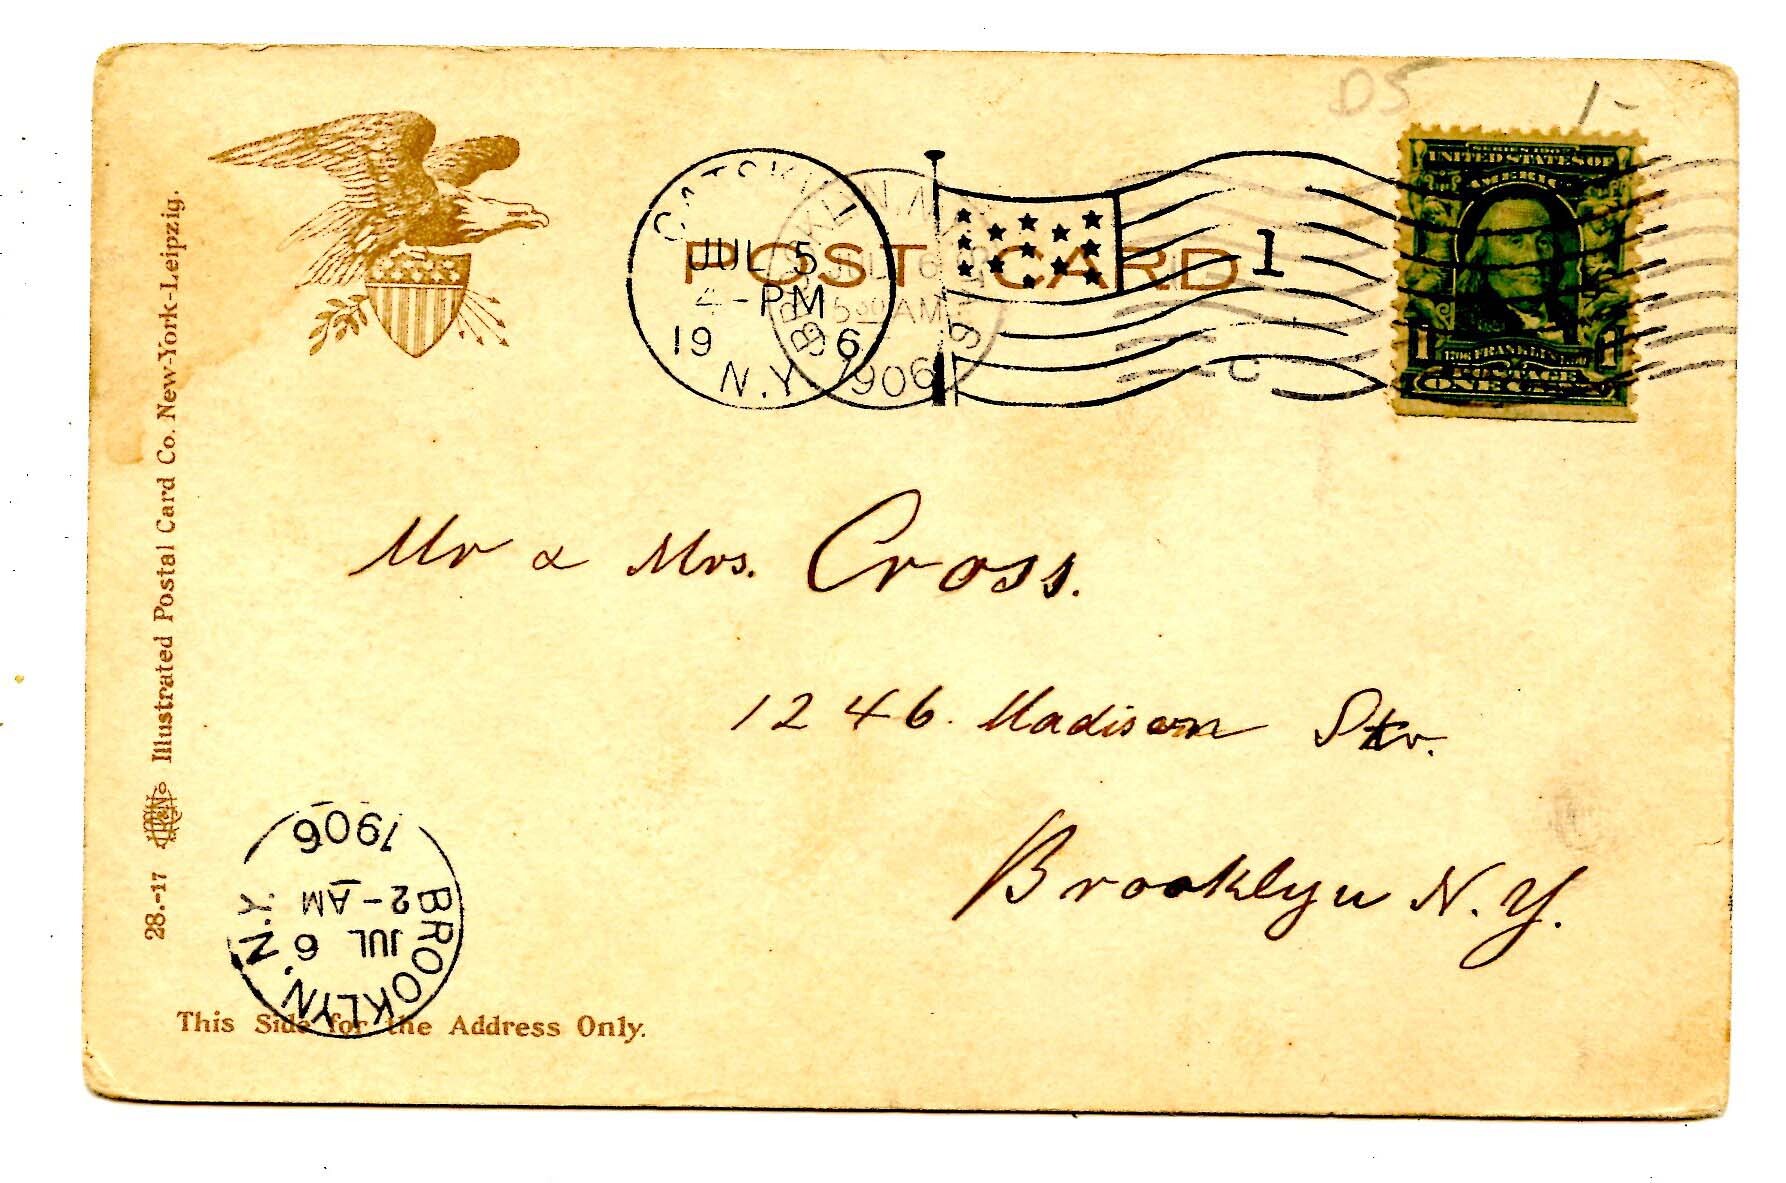 D5 1-
SERIES 1902
UNITED STATES OF
AMERICA
1706 FRANKLIN 1790
POSTAGE
1 ONE CENT 1
POST CARD
CATSKILL
JUL 5
4-PM
19 06
N.Y.
BROOKLYN, N.Y.
JUL 6
5 30 AM
1906
1
C
Mr & Mrs. Cross.
1246. Madison Str.
Brooklyn N.Y.
28.-17 Illustrated Postal Card Co. New-York-Leipzig.
BROOKLYN, N.Y.
JUL 6
2-AM
1906
This Side for the Address Only.